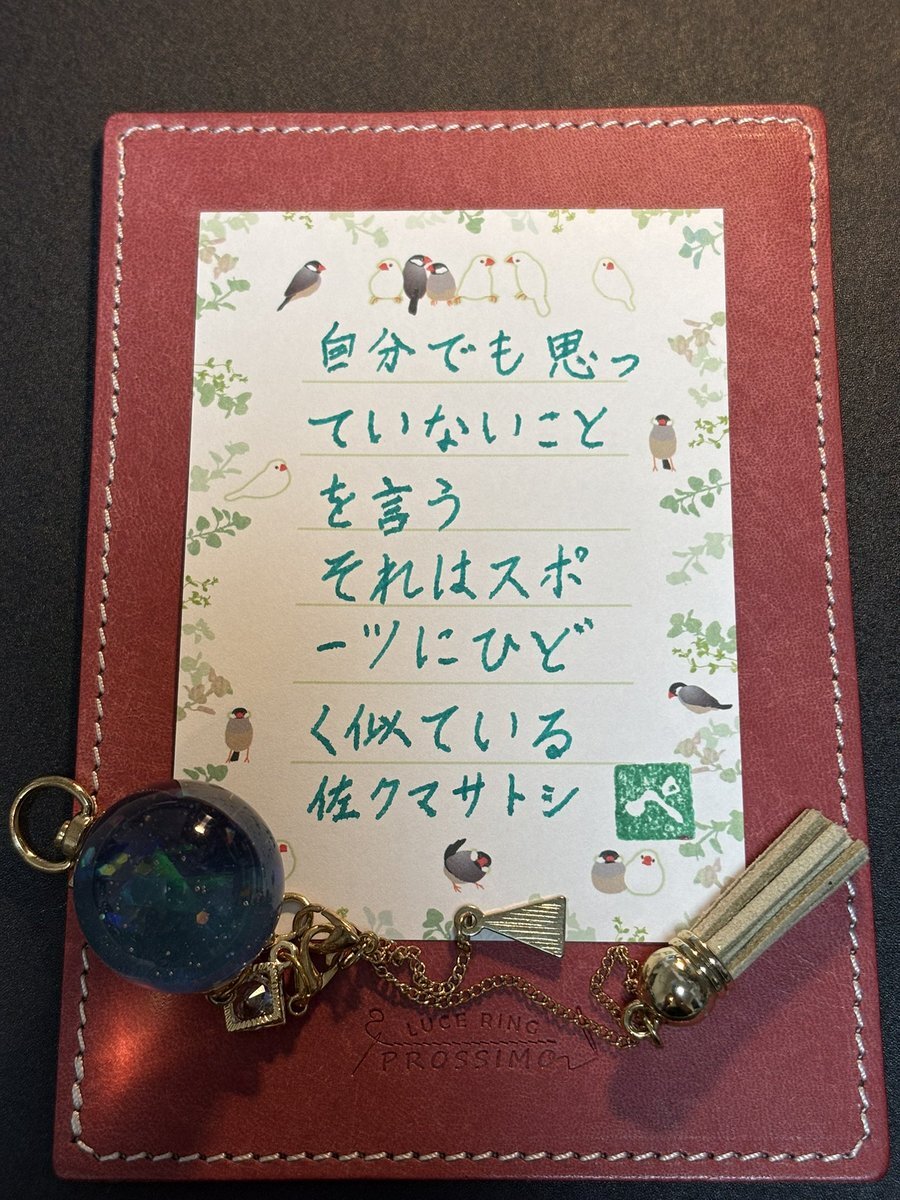 自分でも思っ
ていないこと
を言う
それはスポ
ーツにひど
く似ている
佐クマサトシ
ぺ
LUCE RING
PROSSIMO